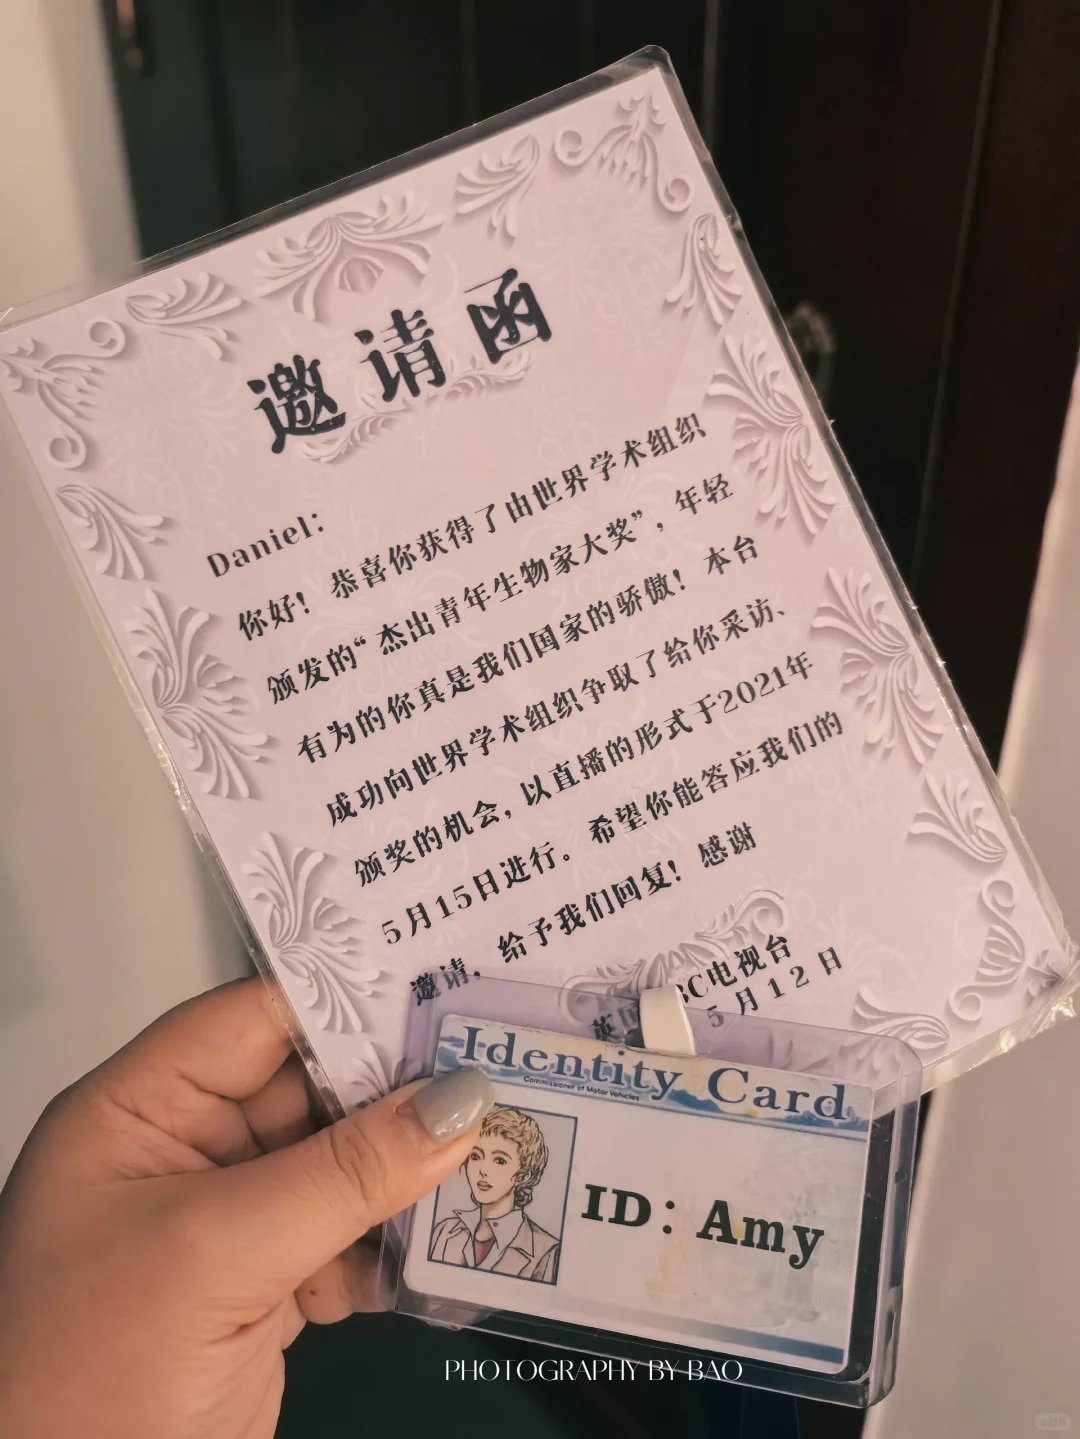 邀请函
Daniel:
你好！恭喜你获得了由世界学术组织
颁发的“杰出青年生物家大奖”，年轻
有为的你真是我们国家的骄傲！本台
成功向世界学术组织争取了给你采访、
颁奖的机会，以直播的形式于2021年
5月15日进行。希望你能答应我们的
邀请，给予我们回复！感谢
BC电视台
5月12日
Identity Card
Commissioner of Motor Vehicles
ID: Amy
PHOTOGRAPHY BY BAO